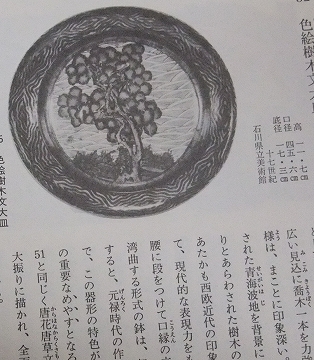 色絵樹木文
高 一一・七㎝
口径 四五・六㎝
底径 一七・三㎝
十七世紀
石川県立美術館
広い見込に喬木一本を力
様は、まことに印象深い
された青海波地を背景に
りとあらわされた樹木
あたかも西欧近代の印象
て、現代的な表現力を
腰に段をつけて口縁の
湾曲する形式の鉢は、
すると、元禄時代の作
で、この器形の特色が
の重要なめやすとなる
51と同じく唐花唐草文
大振りに描かれ、全
色絵樹木文大皿